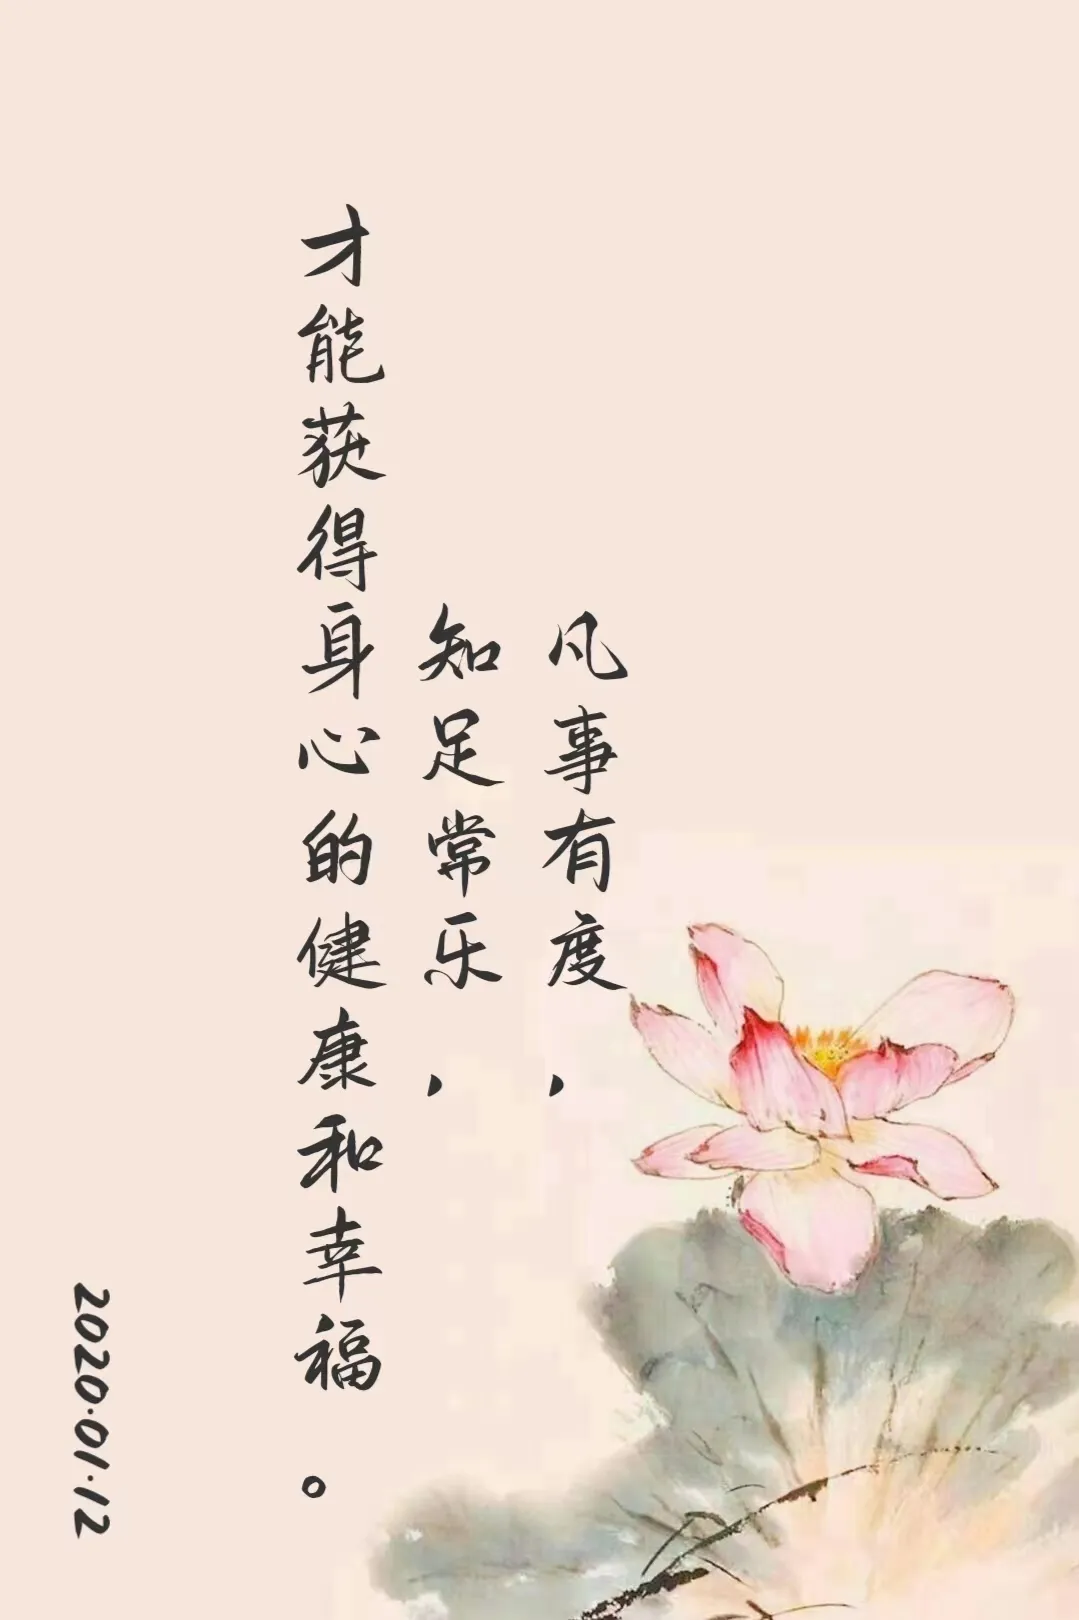 凡事有度，
知足常乐，
才能获得身心的健康和幸福。
2020.01.12